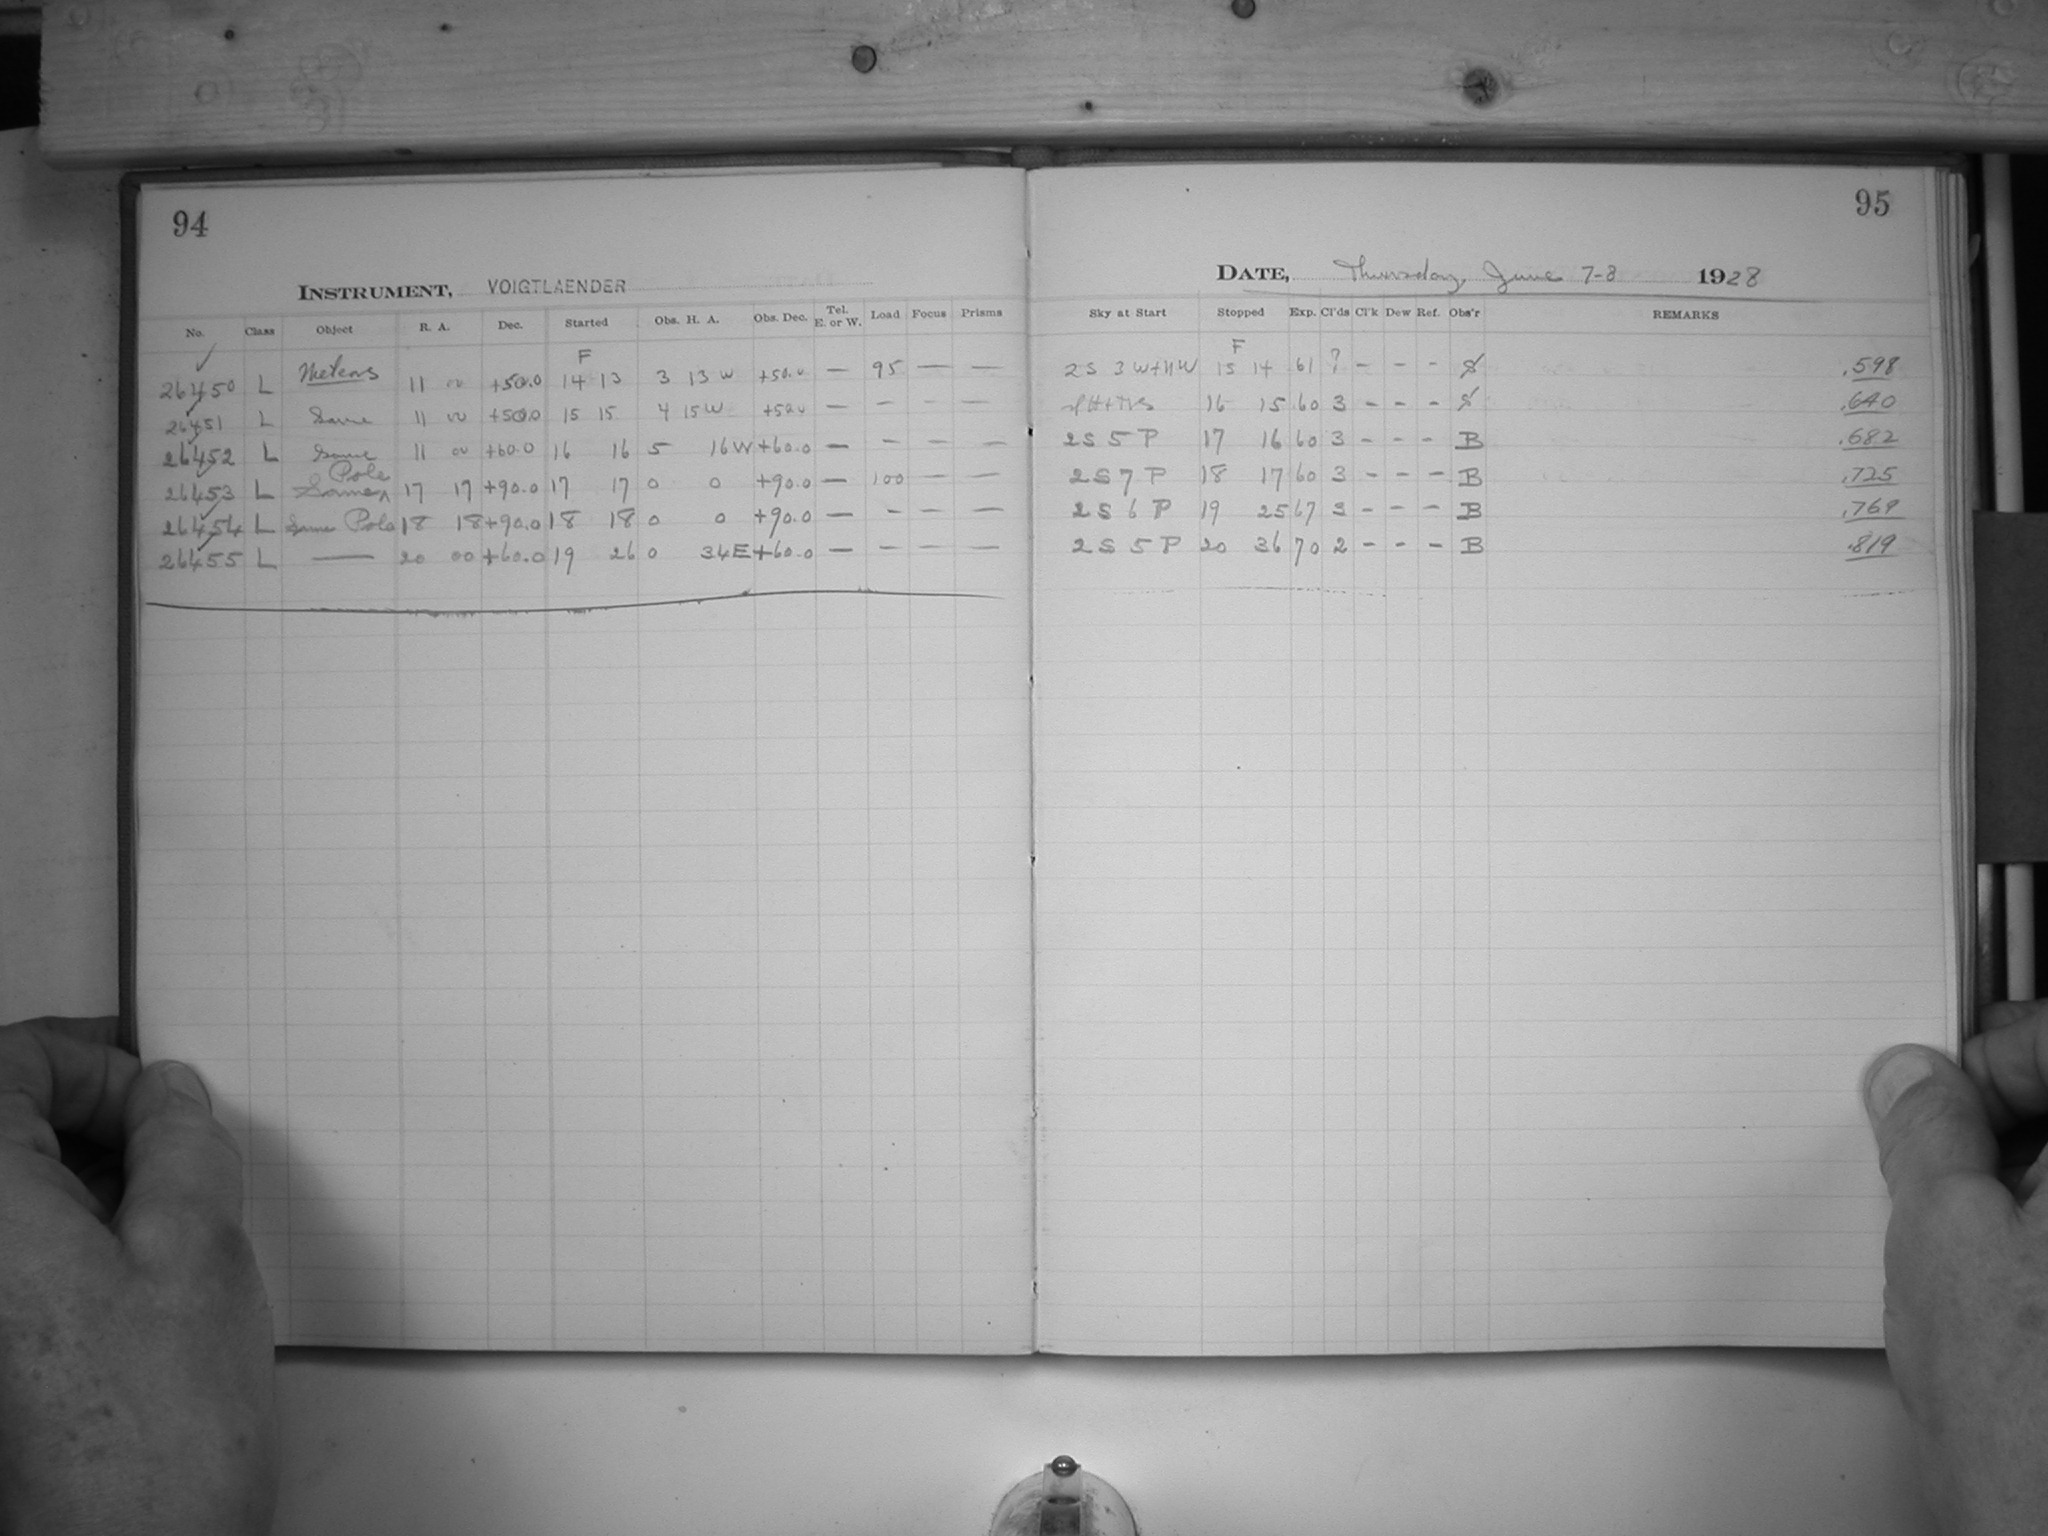 94
INSTRUMENT, VOIGTLAENDER
No. Class Object R. A. Dec. Started Obs. H. A. Obs. Dec. Tel. E. or W. Load Focus Prisms
F
26450 L Meteors 11 00 +50.0 14 13 3 13 W +50.0 — 95 — —
26451 L Same 11 00 +50.0 15 15 4 15 W +50.0 — — — —
26452 L Same 11 00 +60.0 16 16 5 16 W +60.0 — — — —
Pole
26453 L Same 17 17 +90.0 17 17 0 0 +90.0 — 100 — —
26454 L Same Pole 18 18 +90.0 18 18 0 0 +90.0 — — — —
26455 L — 20 00 +60.0 19 26 0 34 E +60.0 — — — —
95
DATE, Thursday, June 7-8 1928
Sky at Start Stopped Exp. Cl'ds Cl'k Dew Ref. Obs'r REMARKS
F
2 S 3 W+NW 15 14 61 ? - - - .598
16 15 60 3 - - - .640
2 S 5 P 17 16 60 3 - - - B .682
2 S 7 P 18 17 60 3 - - - B .725
2 S 6 P 19 25 67 3 - - - B .769
2 S 5 P 20 36 70 2 - - - B .819